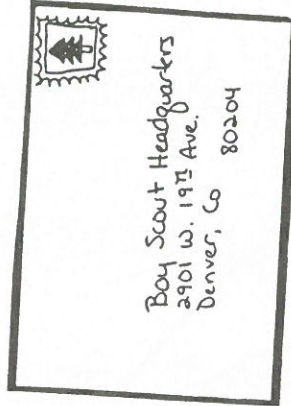 Boy Scout Headquarters
2901 W. 19th Ave.
Denver, Co
80204